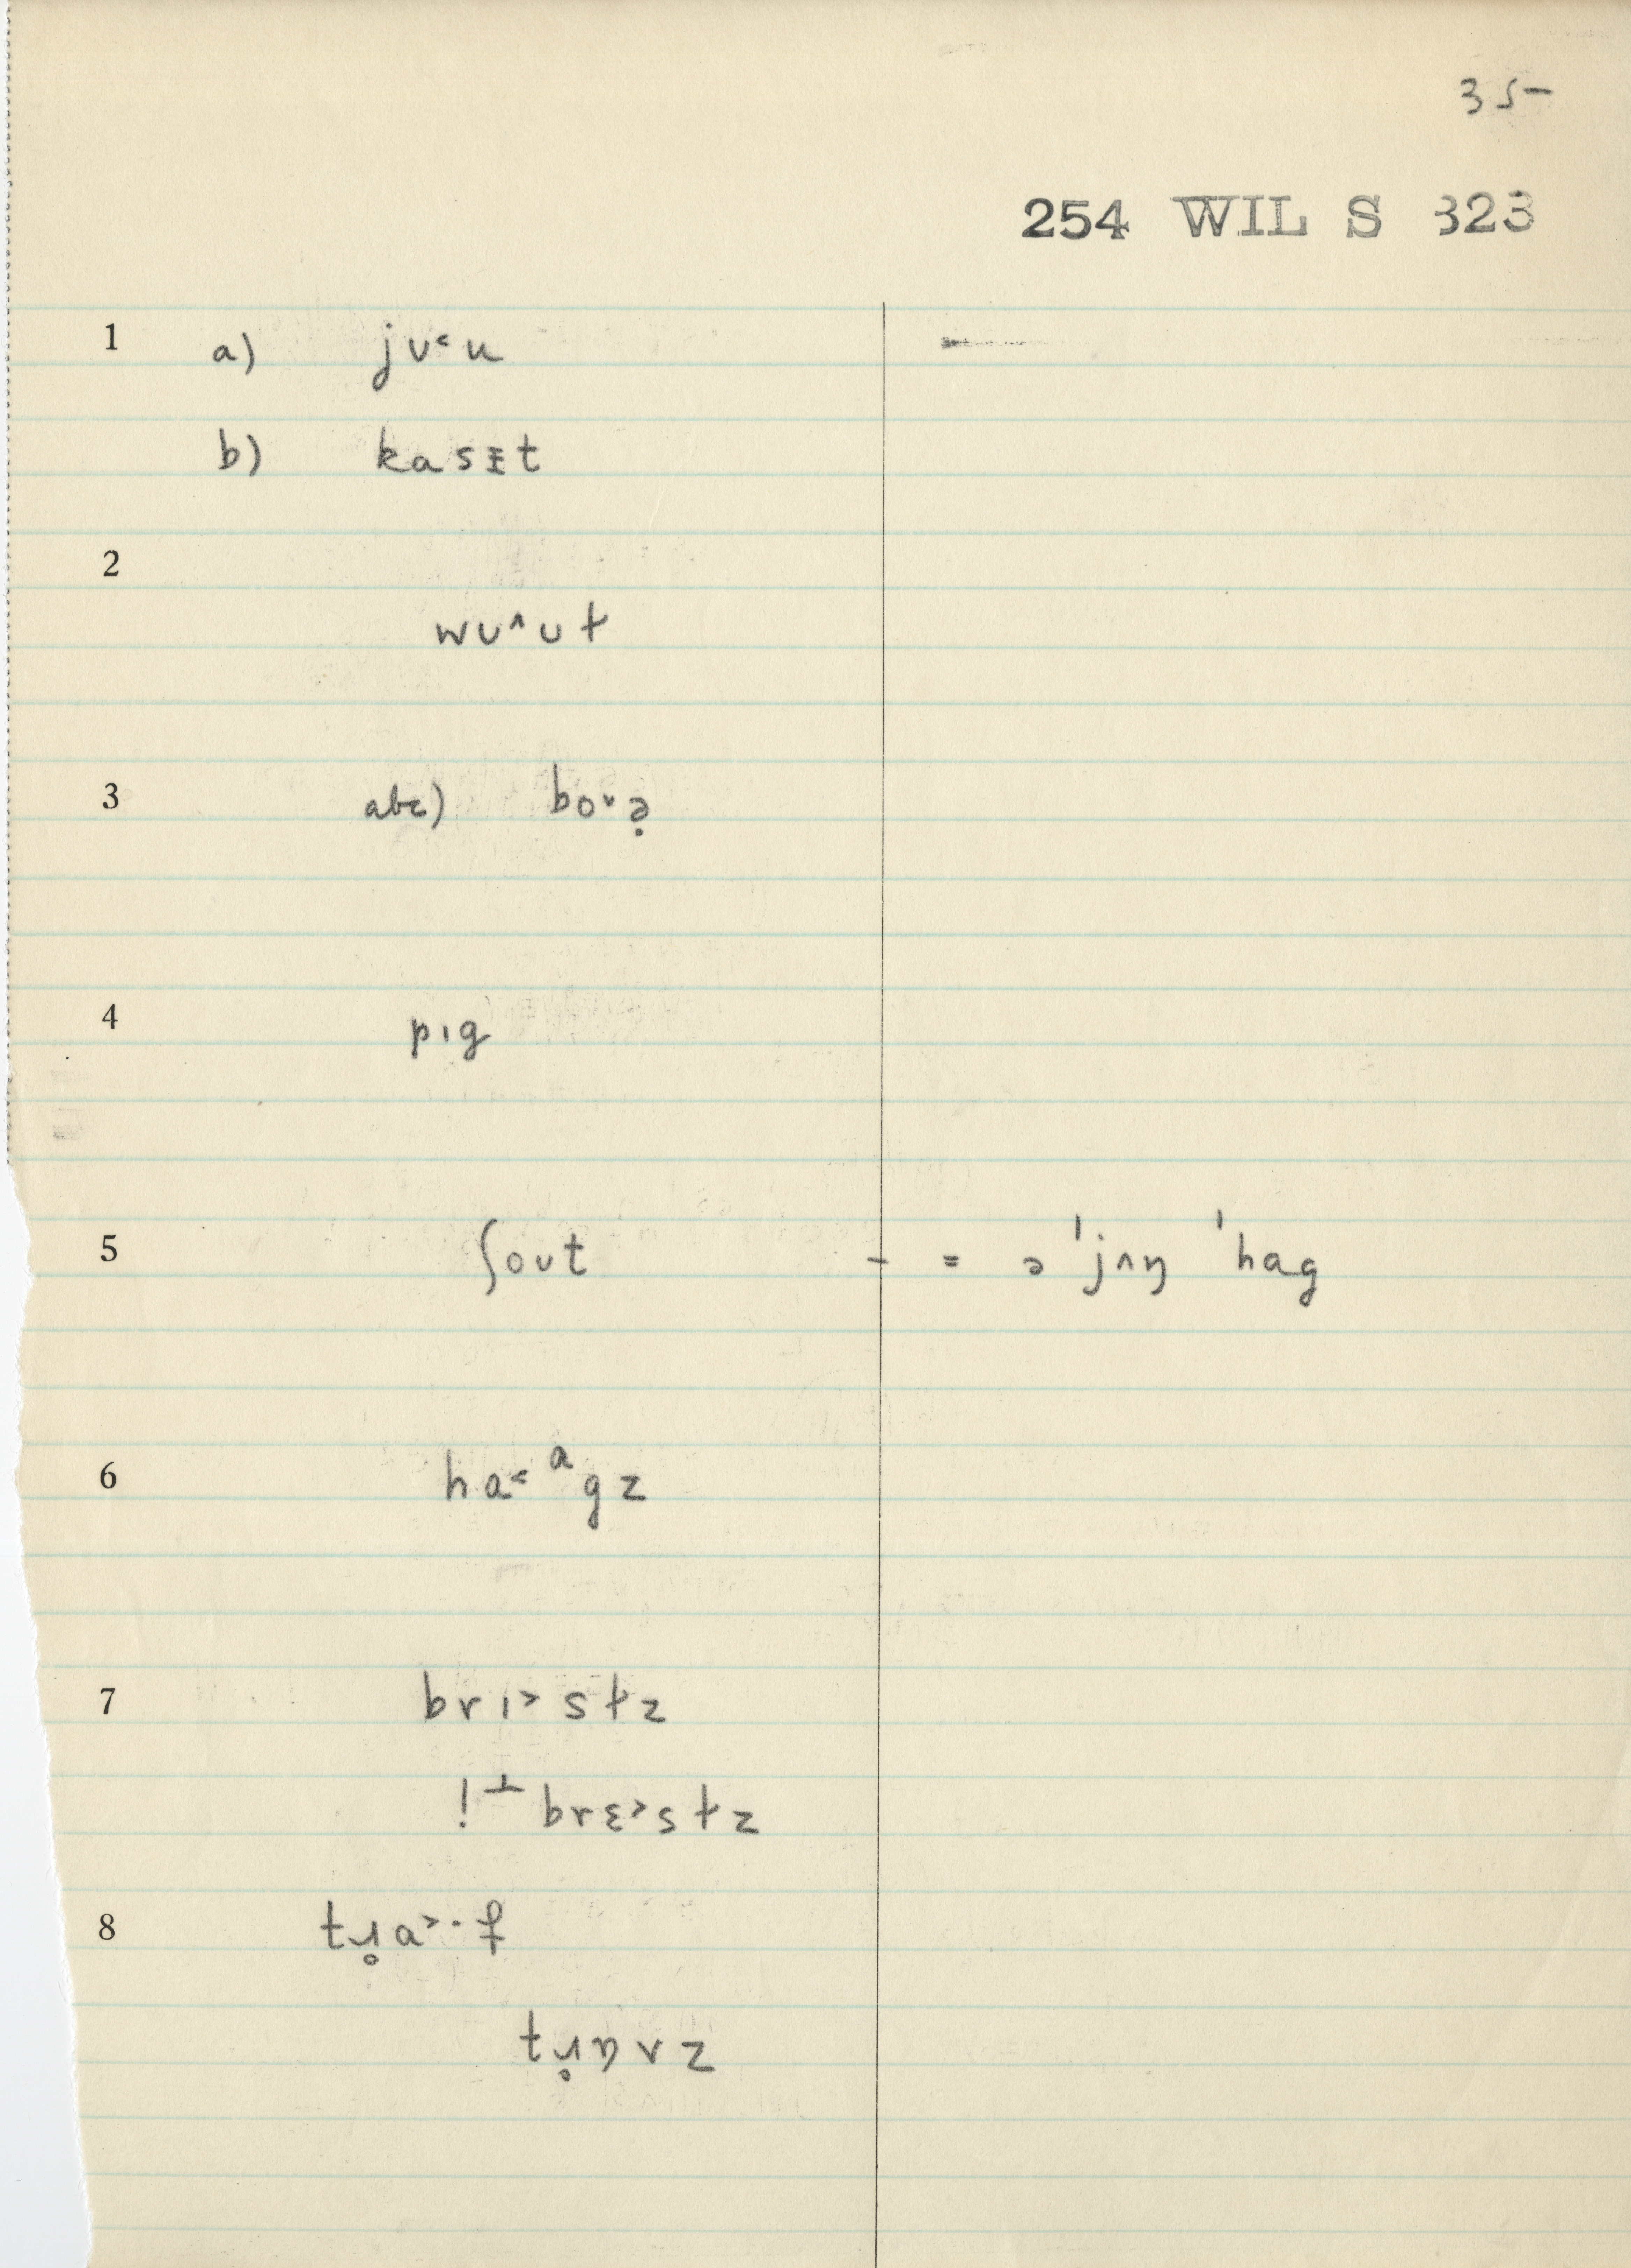 35-
254 WIL S 323
1 a) jʊ˂u
b) kasᵻt
2
wu˄ʊt
3 abc) bo˅ə̣
4 pɪg
5 ʃoʊt - = ə ˈjʌŋ ˈhag
6 ha˂ᵃgz
7 brɪ˃stz
! ⊥ brɛ˃stz
8 tɹ̥a˃·f
tɹ̥ɒvz